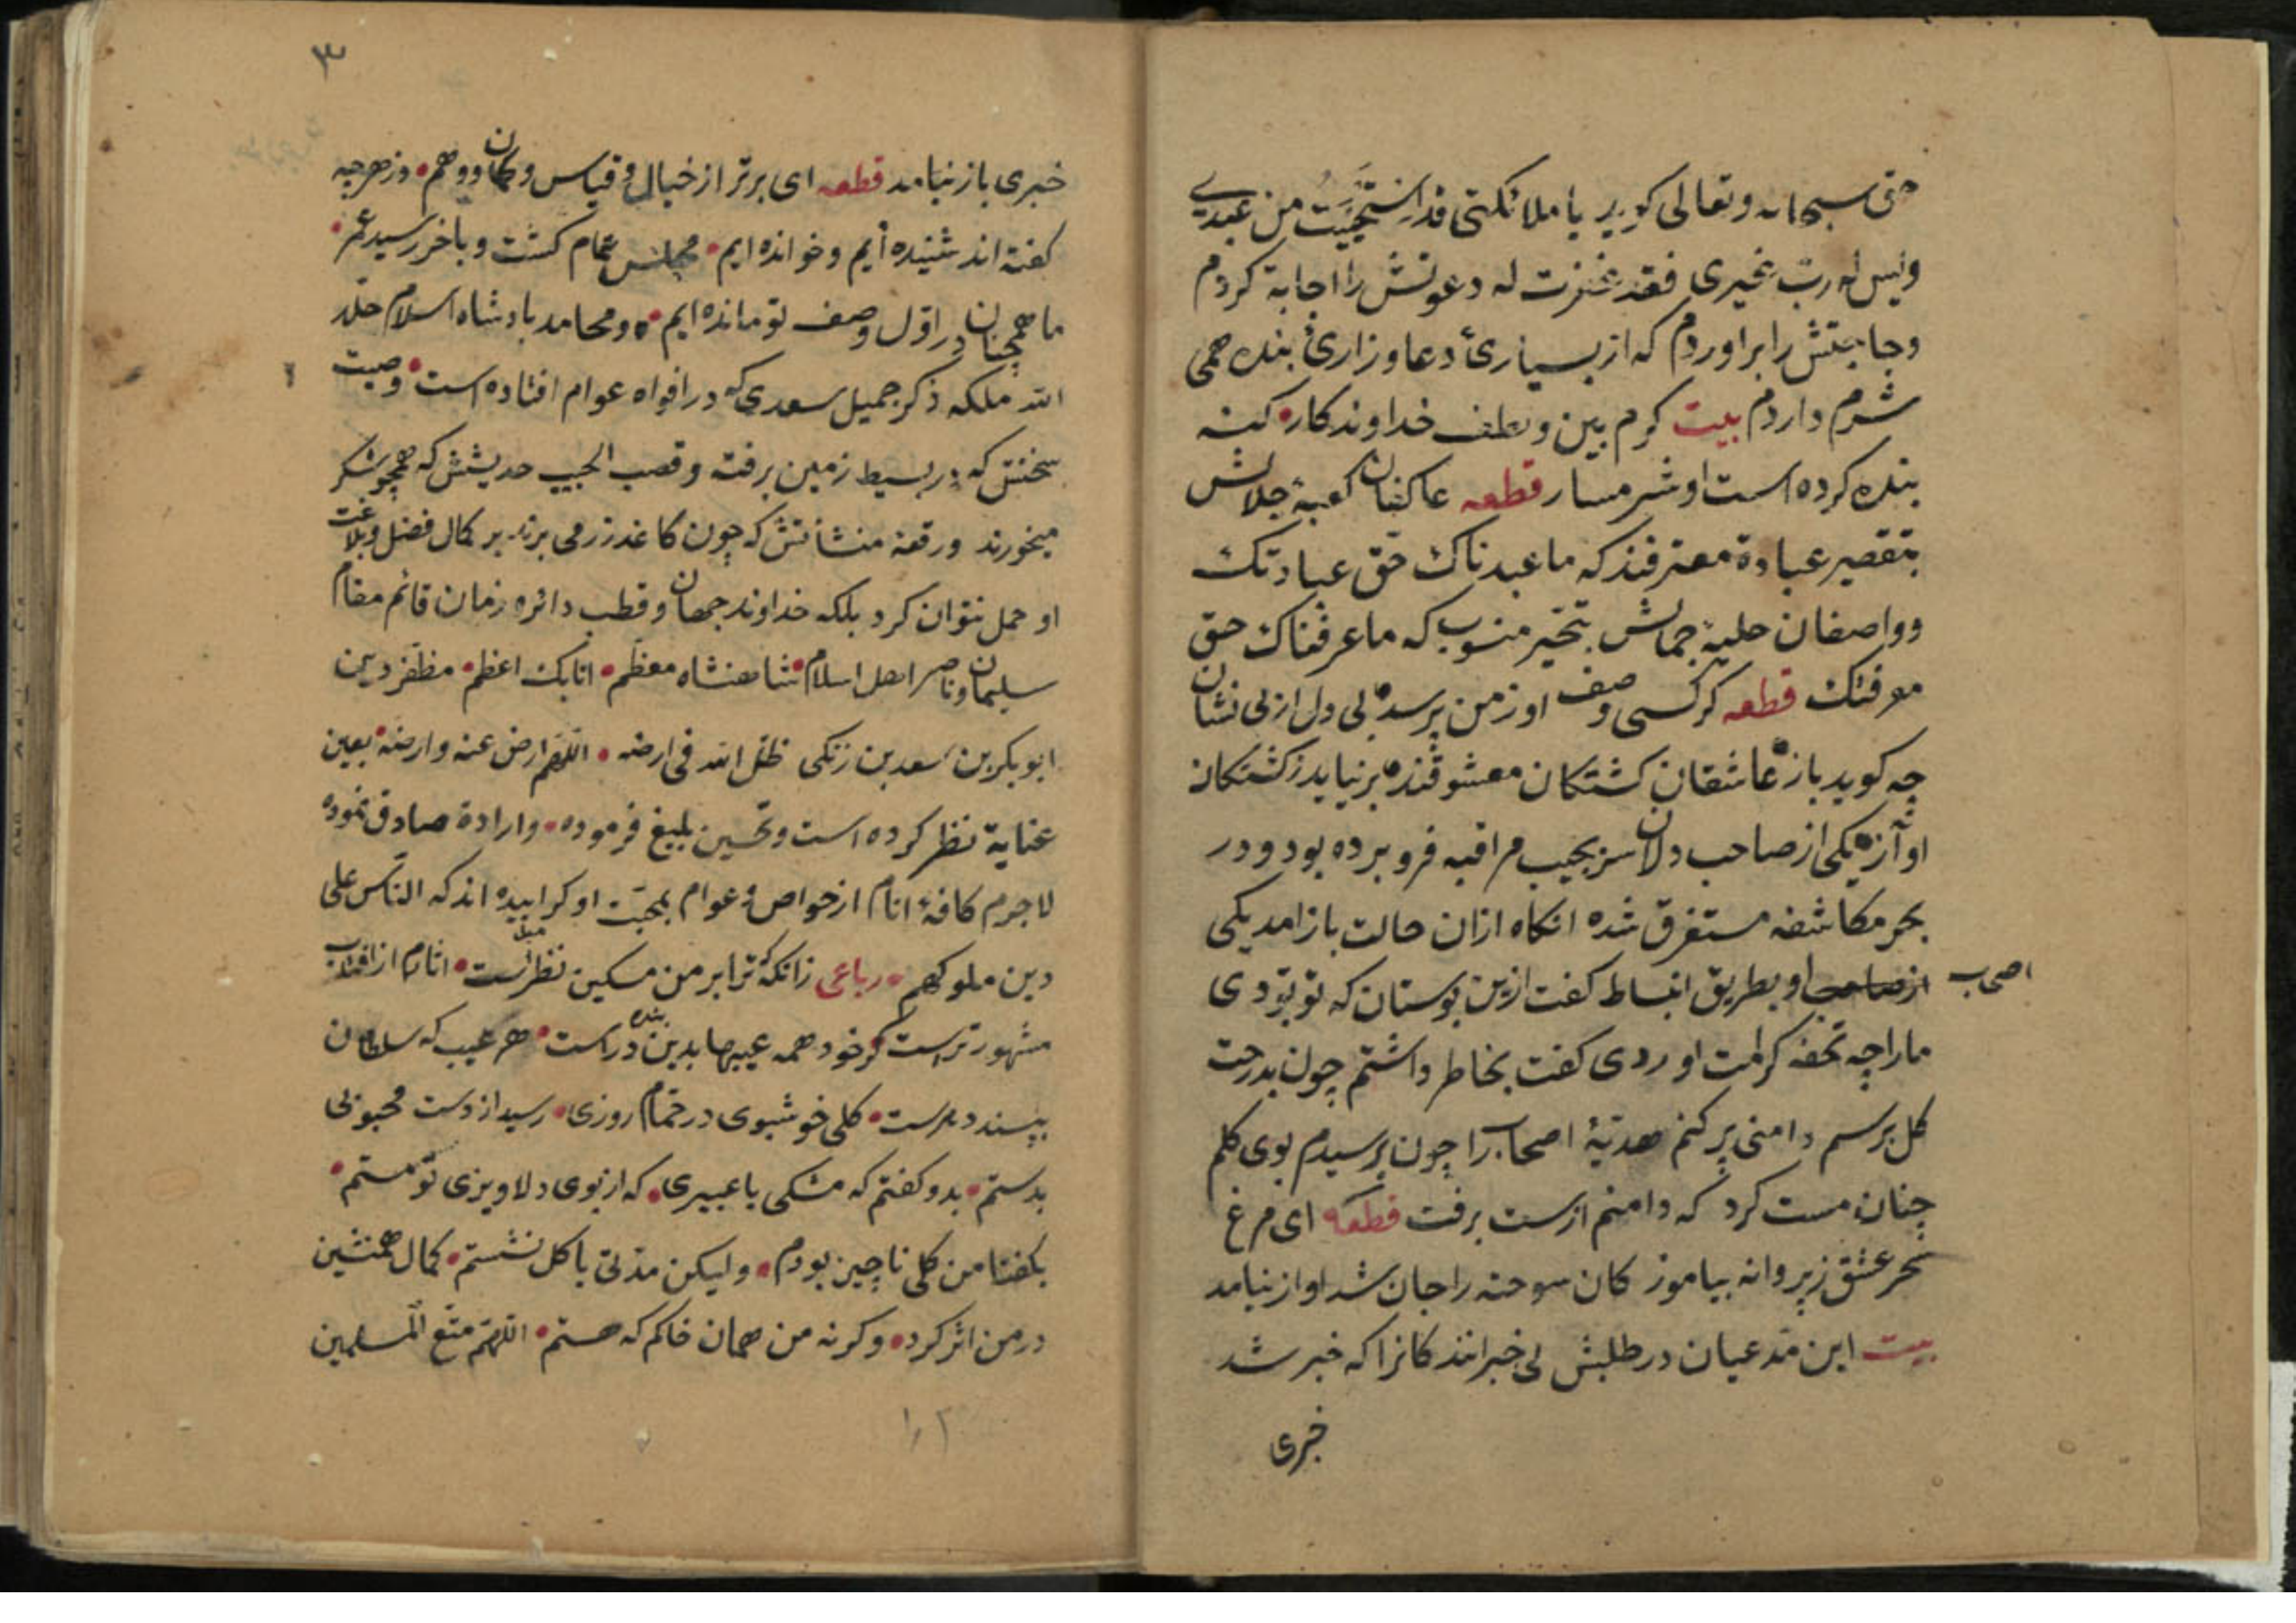 حق سبحانه وتعالی کوید یا ملائکتی قد استحییت من عبدی
ولیس له رب غیری فقد غفرت له دعوتش را اجابة کردم
وحاجتش را براوردم که از بسیاریٔ دعا وزاریٔ بنده همی
شرم دارم بیت کرم بین و لطف خداوندکار کنه
بنده کرده است او شرمسار قطعه عاکفان کعبهٔ جلالش
بتقصیر عبادة معترفند که ما عبدناک حق عبادتک
وواصفان حلیهٔ جمالش بتحیر منسوب که ما عرفناک حق
معرفتک قطعه کر کسی وصف او زمن پرسد بی دل از بی نشان
چه کوید باز عاشقان کشتکان معشوقند بر نیاید زکشتکان
اواز یکی از صاحب دلان سر بجیب مراقبه فرو برده بود ودر
بحر مکاشفه مستغرق شده انکاه ازان حالت باز امد یکی
از اصحاب او بطریق انبساط کفت ازین بوستان که تو بودی
مارا چه تحفه کرامت اوردی کفت بخاطر داشتم چون بدرخت
کل برسم دامنی پر کنم هدیهٔ اصحاب را چون برسیدم بوی کلم
چنان مست کرد که دامنم از دست برفت قطعه ای مرغ
سحر عشق ز پروانه بیاموز کان سوخته را جان شد اواز نیامد
بیت این مدعیان در طلبش بی خبرانند کانرا که خبر شد
خبری
٣
خبری باز نیامد قطعه ای برتر از خیال وقیاس وکمان ووهم وز هرچه
کفته اند شنیده ایم وخوانده ایم مجلس تمام کشت وباخر رسید عمر
ما همچنان در اول وصف تو مانده ایم ومحامد بادشاه اسلام خلد
الله ملکه ذکر جمیل سعدی که در افواه عوام افتاده است وصیت
سخنش که در بسیط زمین برفته وقصب الجیب حدیثش که همچو شکر
میخورند ورقعهٔ منشأتش که چون کاغذ زر می برند بر کمال فضل وبلاغت
او حمل نتوان کرد بلکه خداوند جهان وقطب دائره زمان قائم مقام
سلیمان وناصر اهل اسلام شاهنشاه معظم اتابک اعظم مظفر دین
ابو بکر بن سعد بن زنکی ظل الله فی ارضه اللهم ارض عنه وارضه بعین
عنایة نظر کرده است وتحسین بلیغ فرموده وارادة صادق نموده
لاجرم کافهٔ انام از خواص وعوام بمحبت او کراییده اند که الناس علی
دین ملوکهم رباعی زانکه که ترا بر من مسکین نظر است اثارم از افتاب
مشهورتر است کر خود همه عیبها بدین بنده در است هر عیب که سلطان
بپسندد هنرست کلی خوشبوی در حمام روزی رسید از دست محبوبی
بدستم بدو کفتم که مشکی یا عبیری که از بوی دلاویزی تو مستم
بکفتا من کلی ناچیز بودم ولیکن مدتی با کل نشستم کمال همنشین
در من اثر کرد وکرنه من همان خاکم که هستم اللهم متع المسلمین